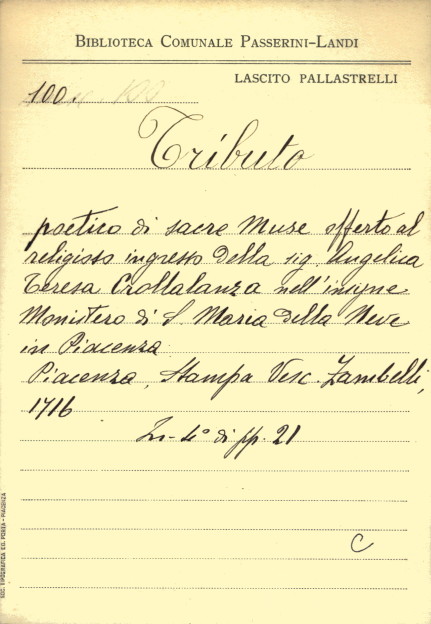 BIBLIOTECA COMUNALE PASSERINI-LANDI
LASCITO PALLASTRELLI
100.
Tributo
poetico di sacre Muse offerto al
religioso ingresso della sig. Angelica
Teresa Crollalanza nell'insigne
Monistero di S. Maria della Neve
in Piacenza
Piacenza, Stampa Vesc. Zambelli,
1716
In-4° di pp. 21
C
SOC. TIPOGRAFICA ED. PORTA - PIACENZA